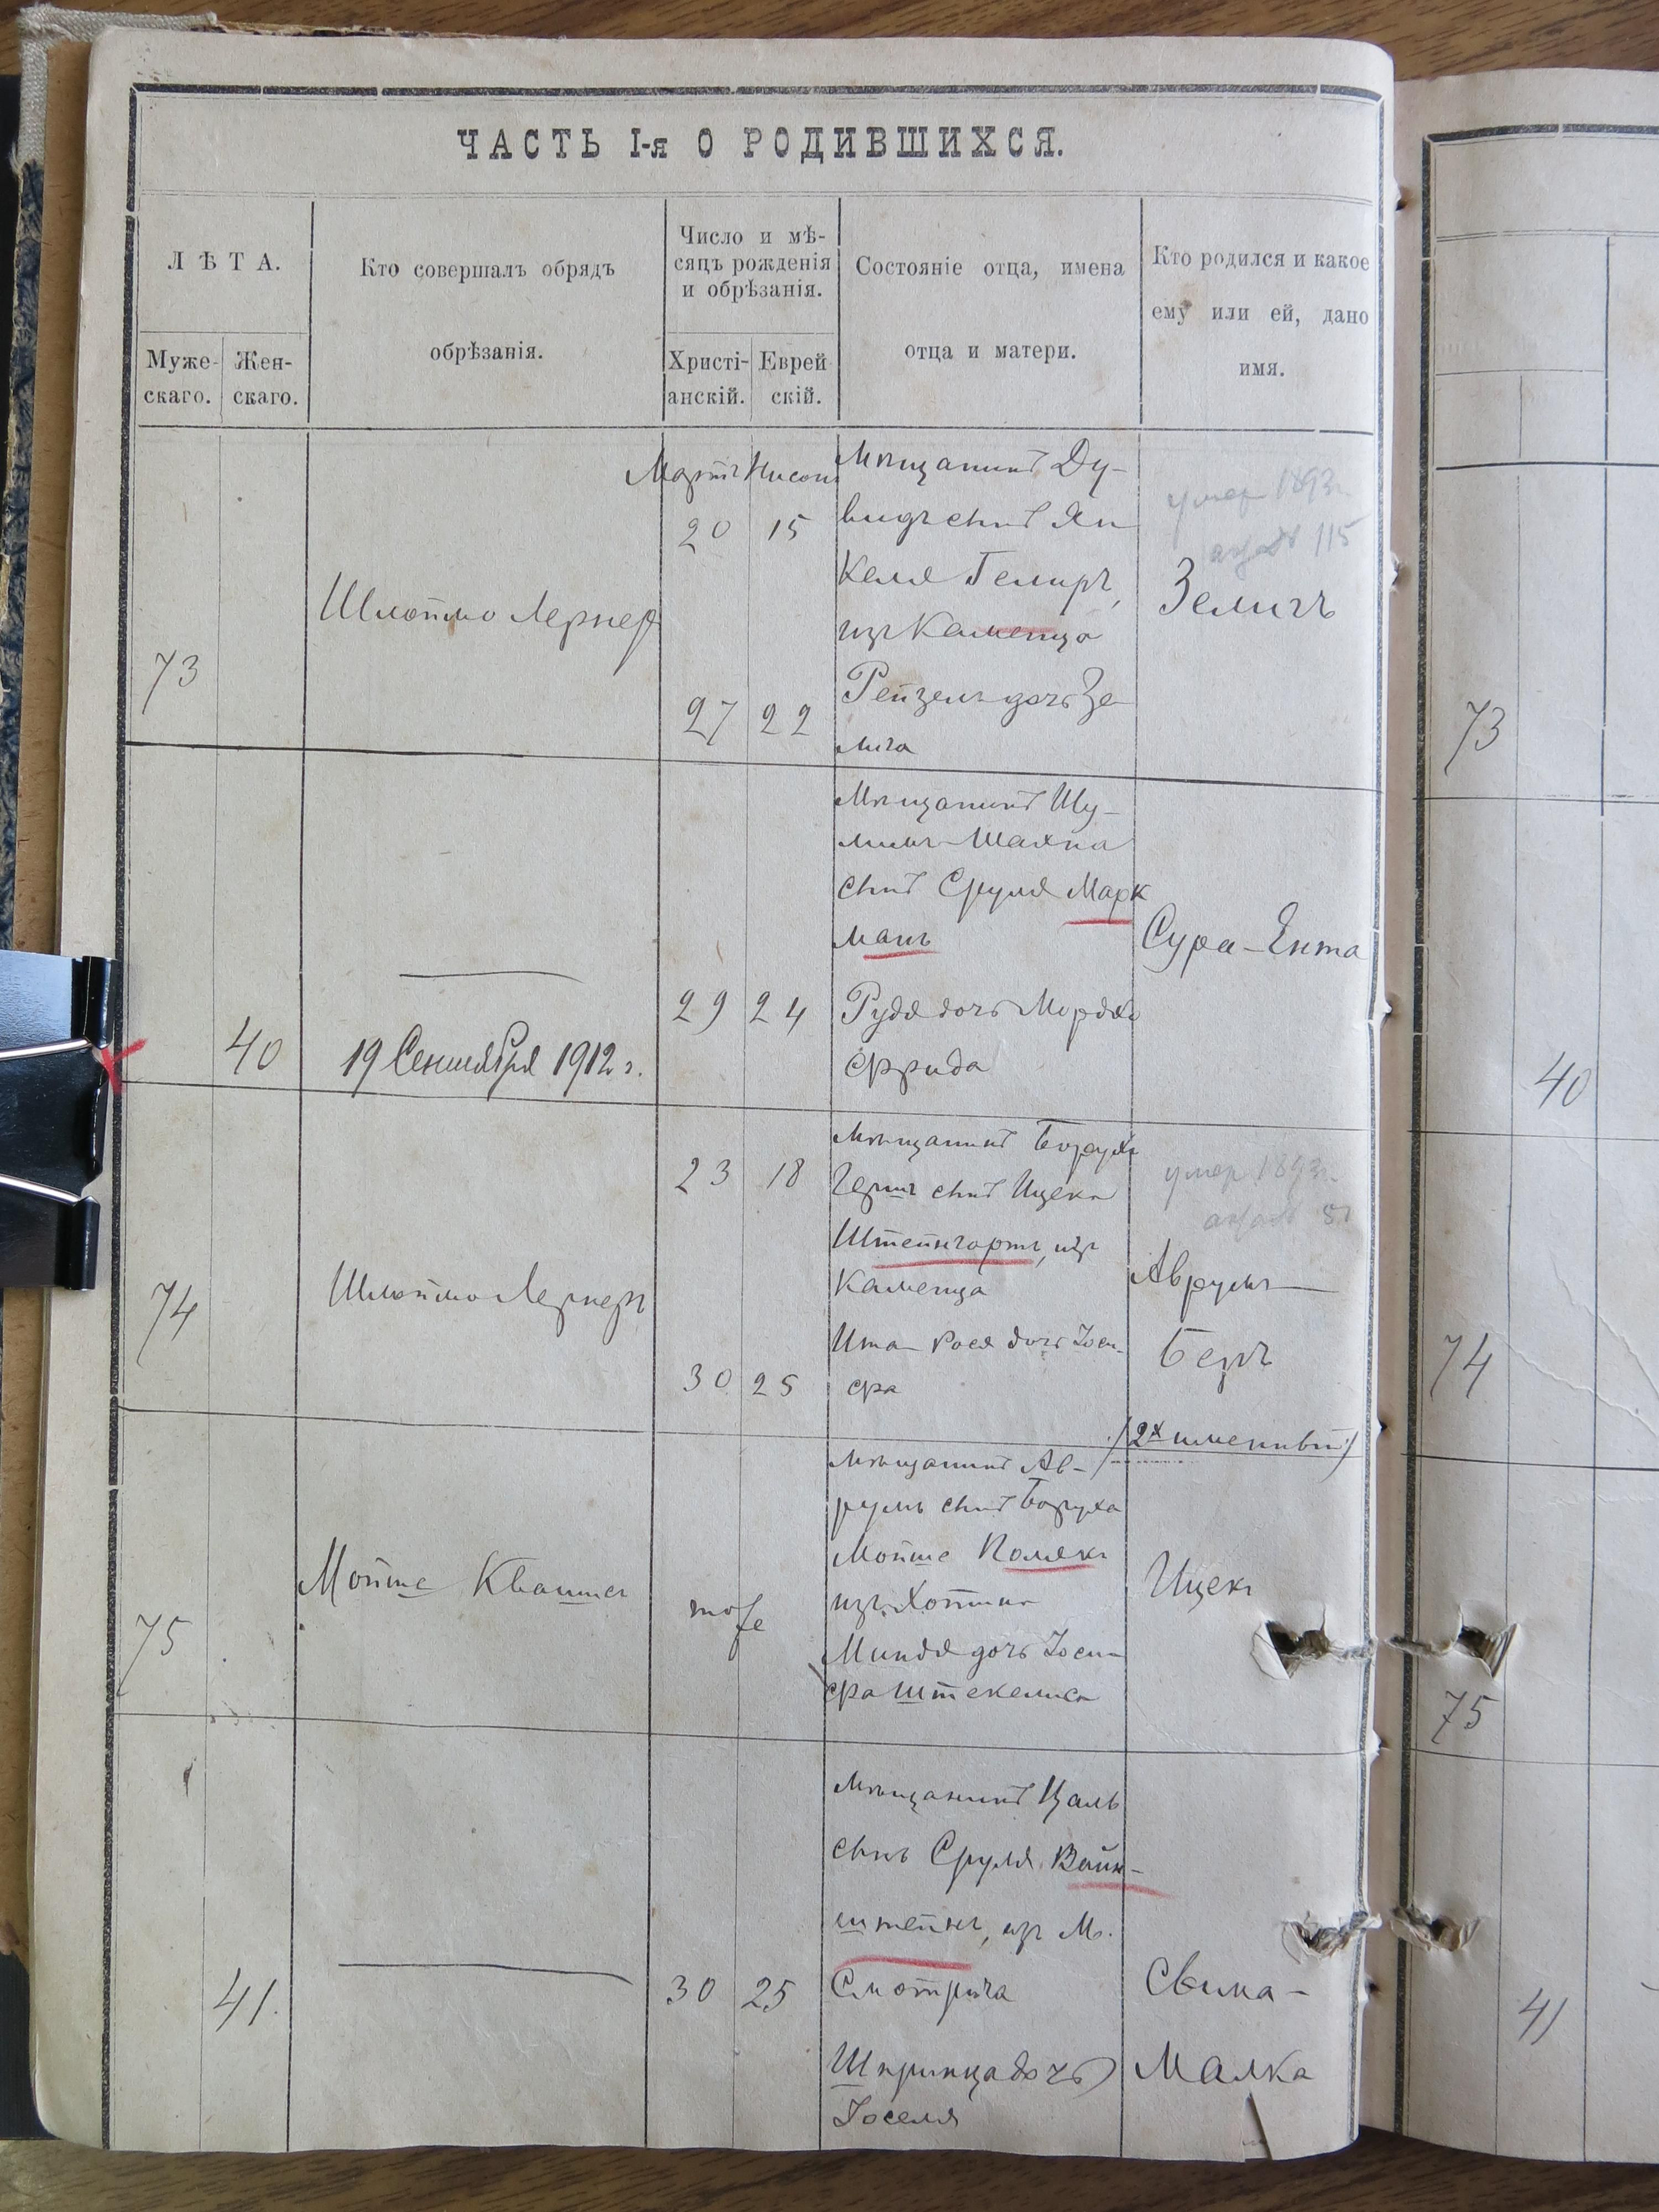 ЧАСТЬ I-я О РОДИВШИХСЯ.
ЛѢТА.
Муже-
скаго.
Жен-
скаго.
Кто совершалъ обрядъ
обрѣзанія.
Число и мѣ-
сяцъ рожденія
и обрѣзанія.
Христі-
анскій.
Еврей
скій.
Состояніе отца, имена
отца и матери.
Кто родился и какое
ему или ей, дано
имя.
73
Шлоймо Лернер
Мартъ Нисонъ
20 15
27 22
Мѣщанинъ Ду-
видъ сынъ Ян
келя Гелиръ,
изъ Каменца
Рейзель дочь Зе
лига
умер 1893 г.
115
Зелигъ
73
40
19 Сентября 1912 г.
29 24
Мѣщанинъ Шу-
лимъ-Шахна
сынъ Сруля Марк
манъ
Рудя дочь Мордко
Фрида
Сура-Ента
40
74
Шлоймо Лернеръ
23 18
30 25
Мѣщанинъ Борухъ
Гершъ сынъ Ицека
Штейнгартъ, изъ
Каменца
Ита Рося дочь Іоси-
фа
умер 1893 г.
51
Аврумъ-
Беръ
/2х именный/
74
75
Мойше Квашна
тоже
Мѣщанинъ Ав-
румъ сынъ Боруха
Мойше Полякъ
изъ Хотина
Миндя дочь Іоси-
фа Штекелиса
Ицекъ
75
41.
30 25
Мѣщанинъ Цаль
сынъ Сруля Вайн-
штейнъ, изъ М.
Смотрича
Шпринца дочь
Іоселя
Свима-
Малка
41